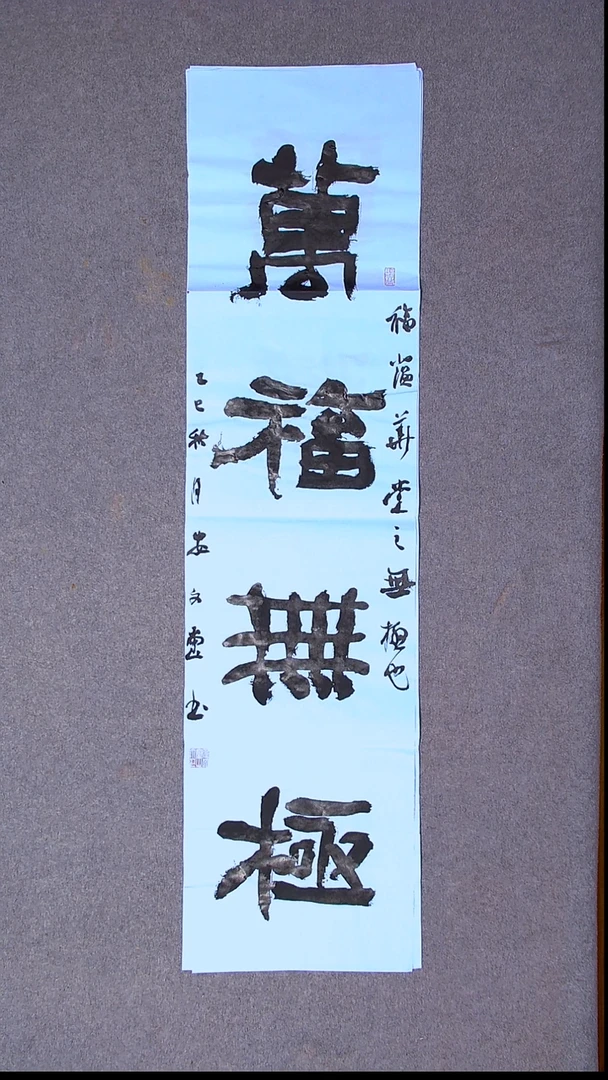 萬福無極
福滿華堂之無極也
乙巳秋月安文靈书